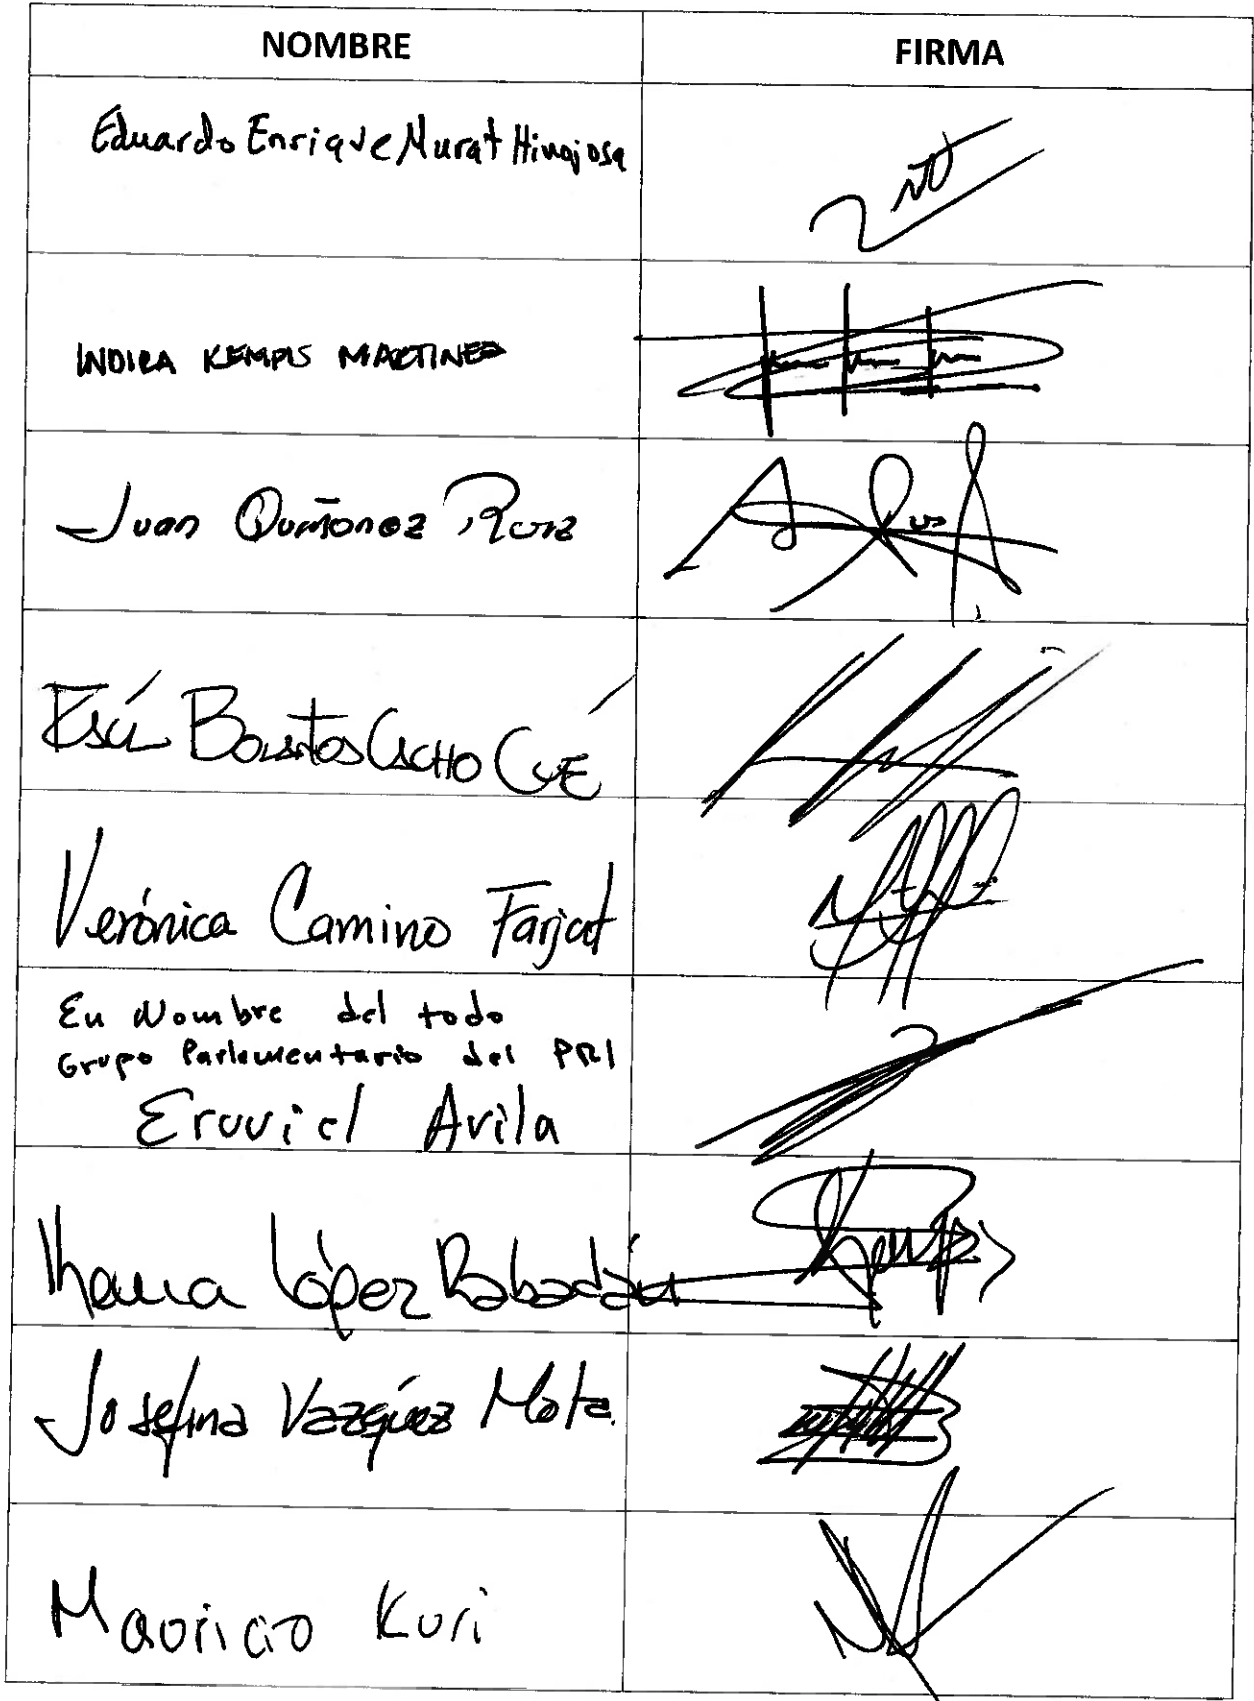 NOMBRE FIRMA
Eduardo Enrique Murat Hinojosa
INDIRA KEMPIS MARTINEZ
Juan Quiñonez Ruiz
Cué
Verónica Camino Farjat
En Nombre del todo
Grupo Parlamentario del PRI
Eruviel Avila
Kenia López Rabadán
Josefina Vazquez Mota
Mauricio Kuri